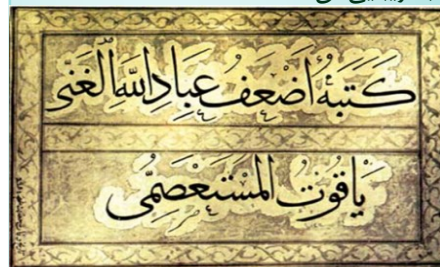 كَتَبَهُ أَضْعَفُ عِبَادِ اللهِ الْغَنِي
يَاقُوتُ الْمُسْتَعْصِمِي